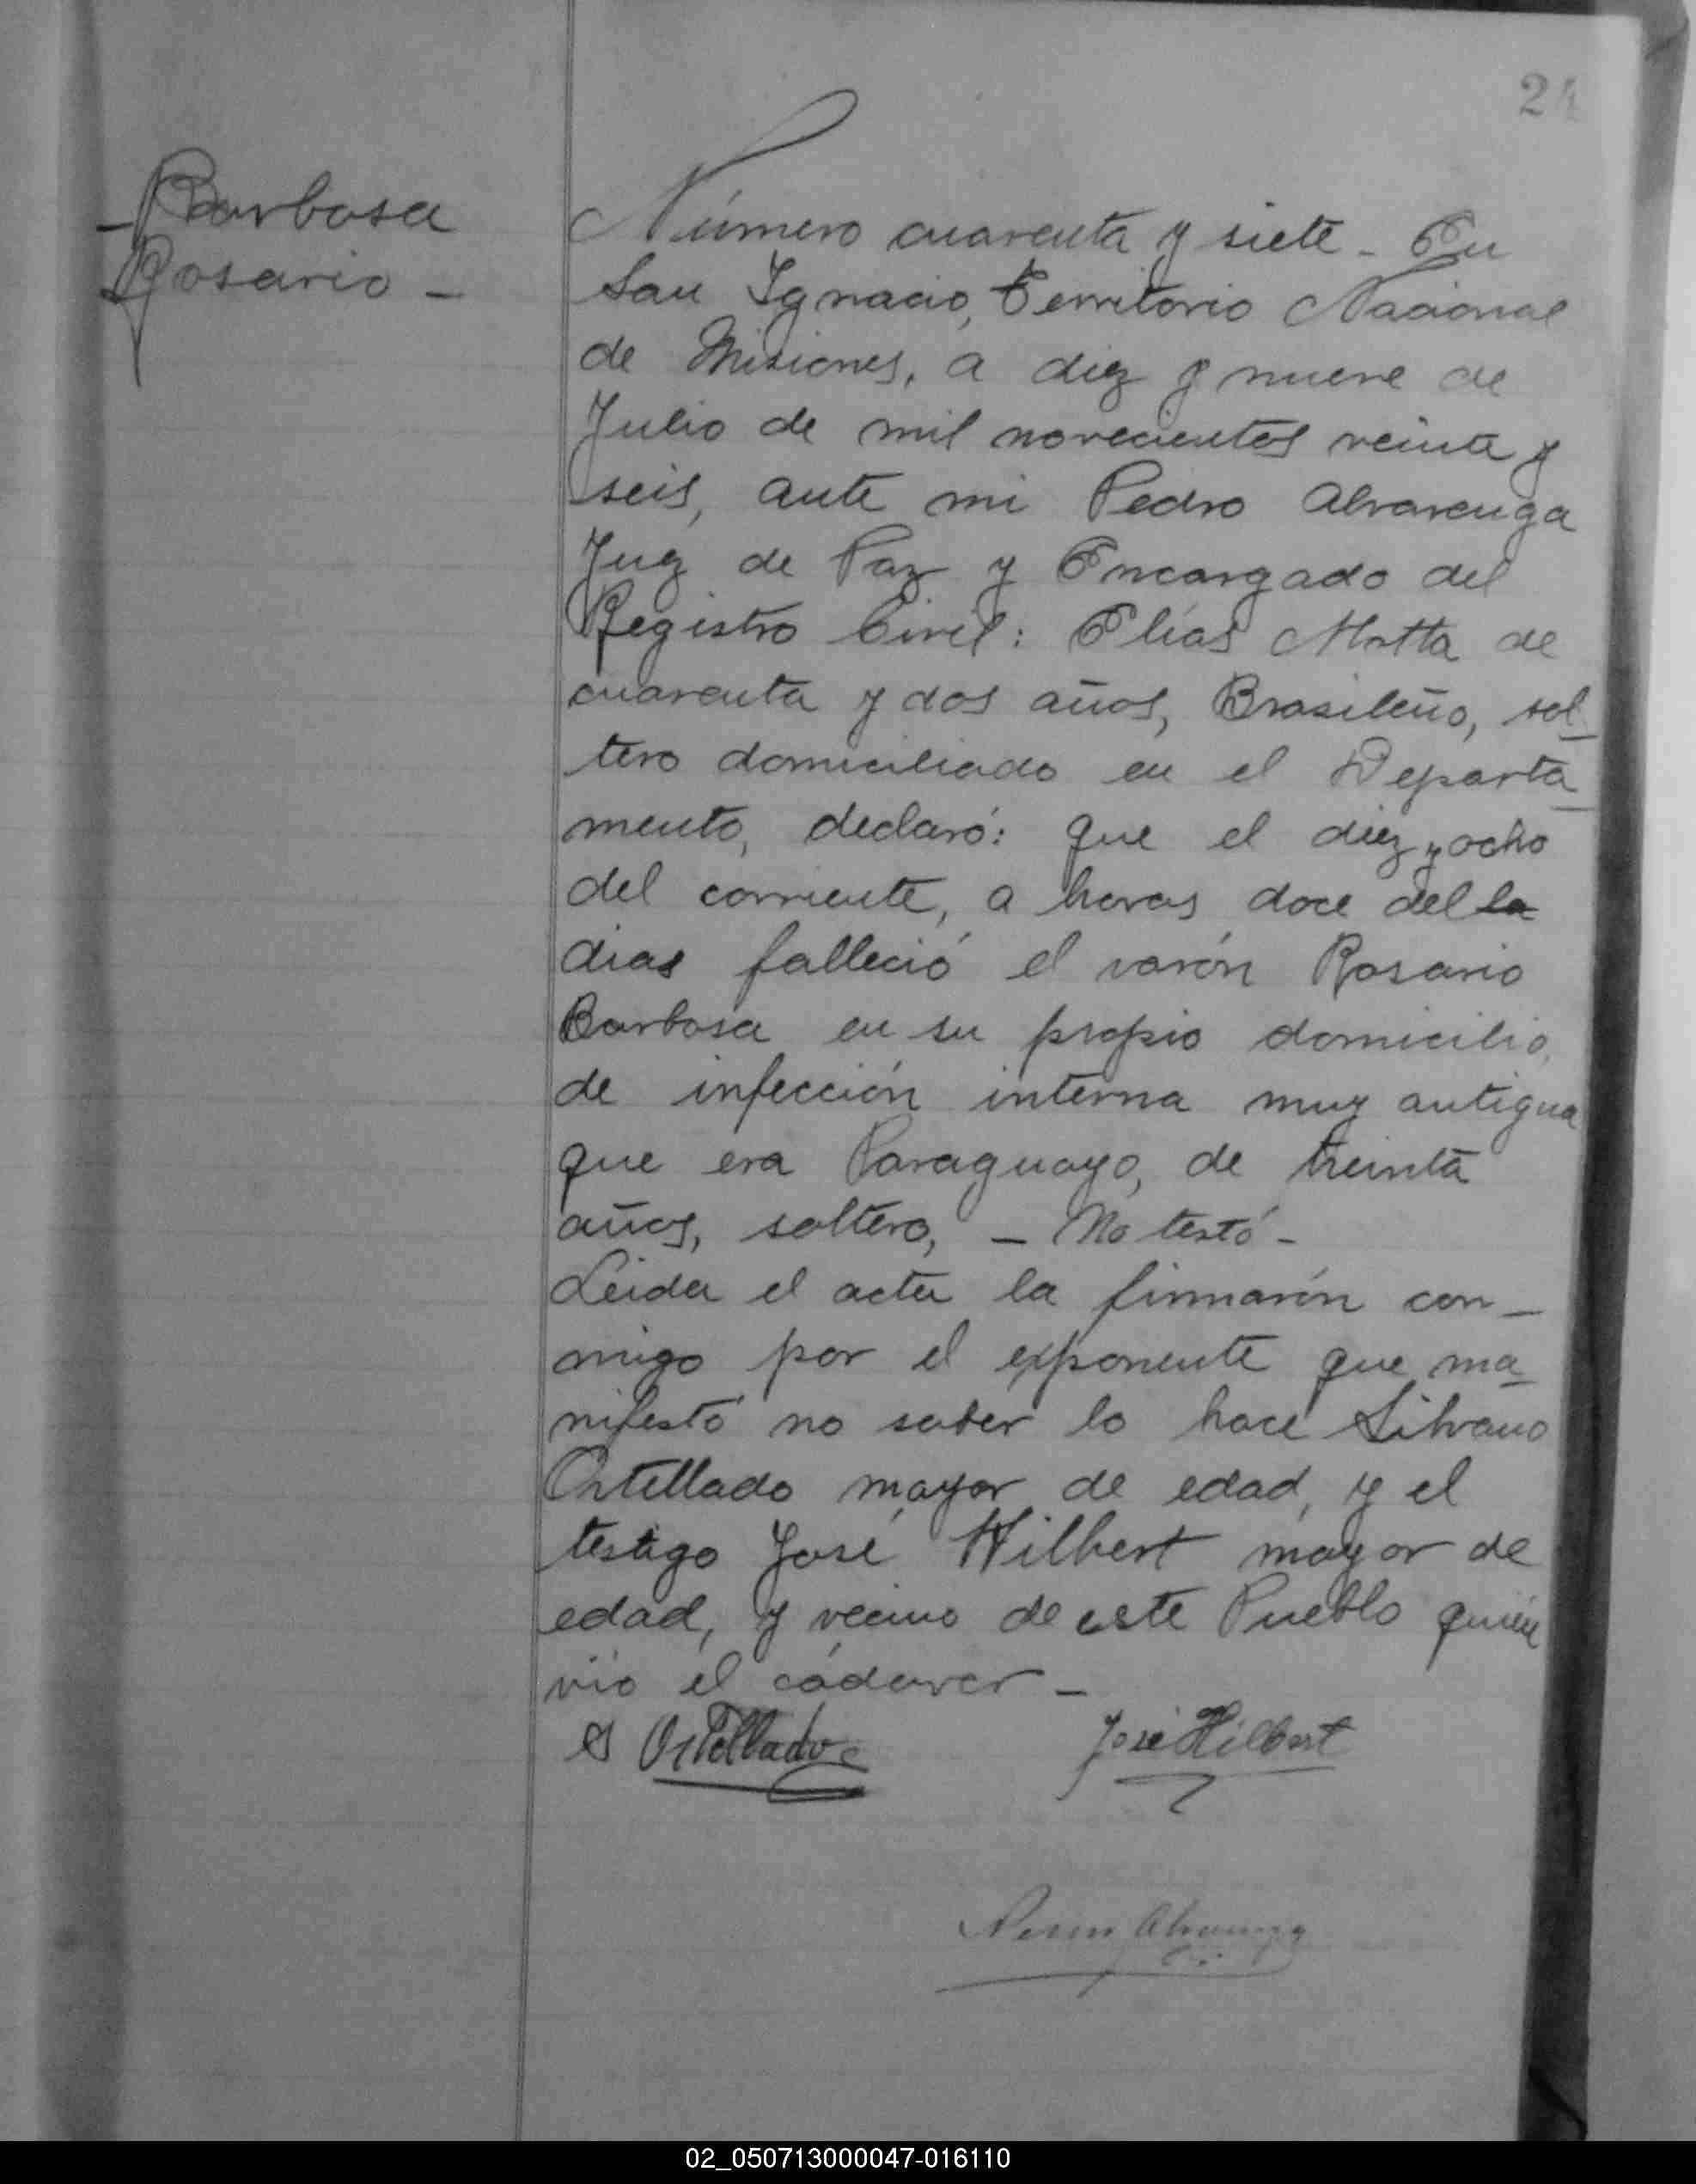 24
Barbosa
Rosario -
Número cuarenta y siete - En
San Ignacio, Territorio Nacional
de Misiones, a diez y nueve de
Julio de mil novecientos veinte y
seis, ante mi Pedro Alvarenga
Juez de Paz y Encargado del
Registro Civil: Elías Motta de
cuarenta y dos años, Brasileño, sol-
tero domiciliado en el Departa-
mento, declaró: que el diez y ocho
del corriente, a horas doce del la
dias falleció el varón Rosario
Barbosa en su propio domicilio,
de infección interna muy antigua
que era Paraguayo, de treinta
años, soltero, - No testó -
Leida el acta la firmarón con-
migo por el exponente que ma-
nifestó no saber lo hace Silvano
Ortellado mayor de edad, y el
testigo José Hilbert mayor de
edad, y vecino de este Pueblo quién
vió el cádaver -
S Ortellado
José Hilbert
Alvarenga
02_050713000047-016110